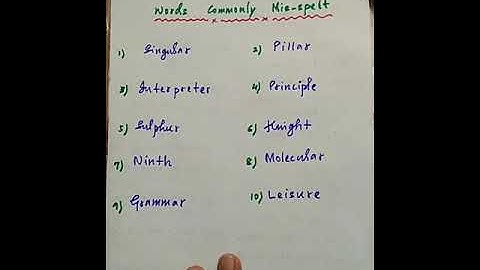 Words Commonly Mis-spelt
1) Singular 2) Pillar
3) Interpreter 4) Principle
5) Sulphur 6) Knight
7) Ninth 8) Molecular
9) Grammar 10) Leisure